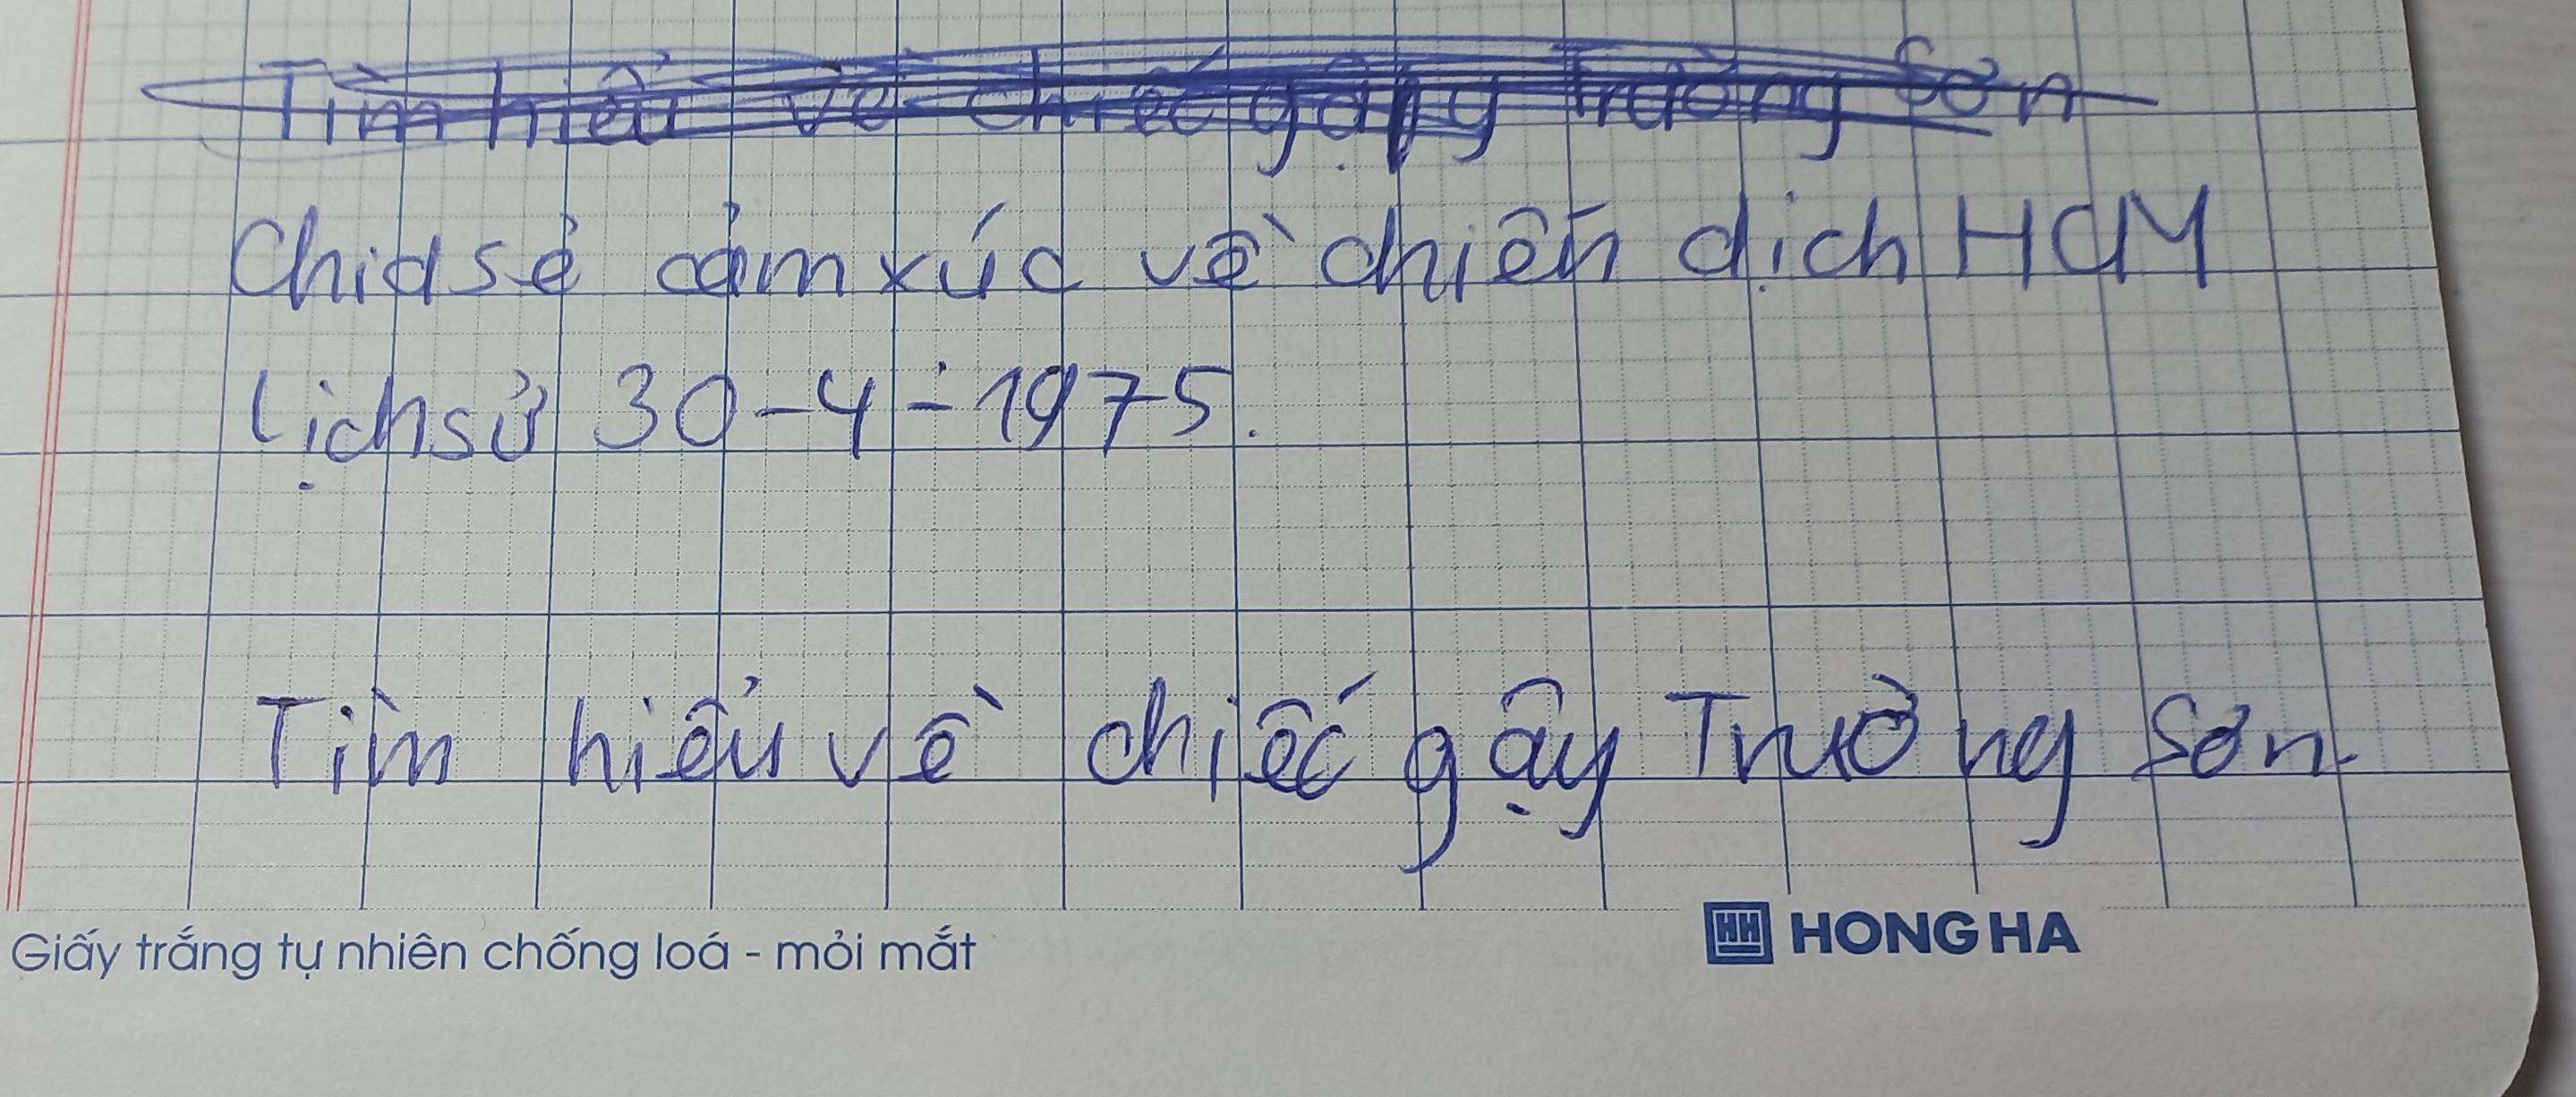 Tìm hiểu về chiếc gậy Trường Sơn
Chia sẻ cảm xúc về chiến dịch HCM
lịch sử 30-4-1975.
Tìm hiểu về chiếc gậy Trường Sơn.
Giấy trắng tự nhiên chống loá - mỏi mắt
HH HONG HA